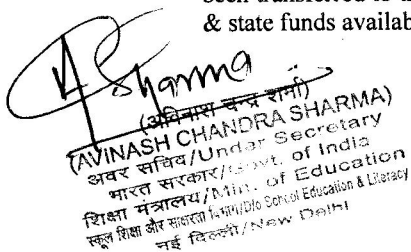 been transferred to
& state funds availab
Sharma
(अविनाश चन्द्र शर्मा)
(AVINASH CHANDRA SHARMA)
अवर सचिव/Under Secretary
भारत सरकार/Govt. of India
शिक्षा मंत्रालय/Min. of Education
स्कूल शिक्षा और साक्षरता विभाग/D/o School Education & Literacy
नई दिल्ली/New Delhi